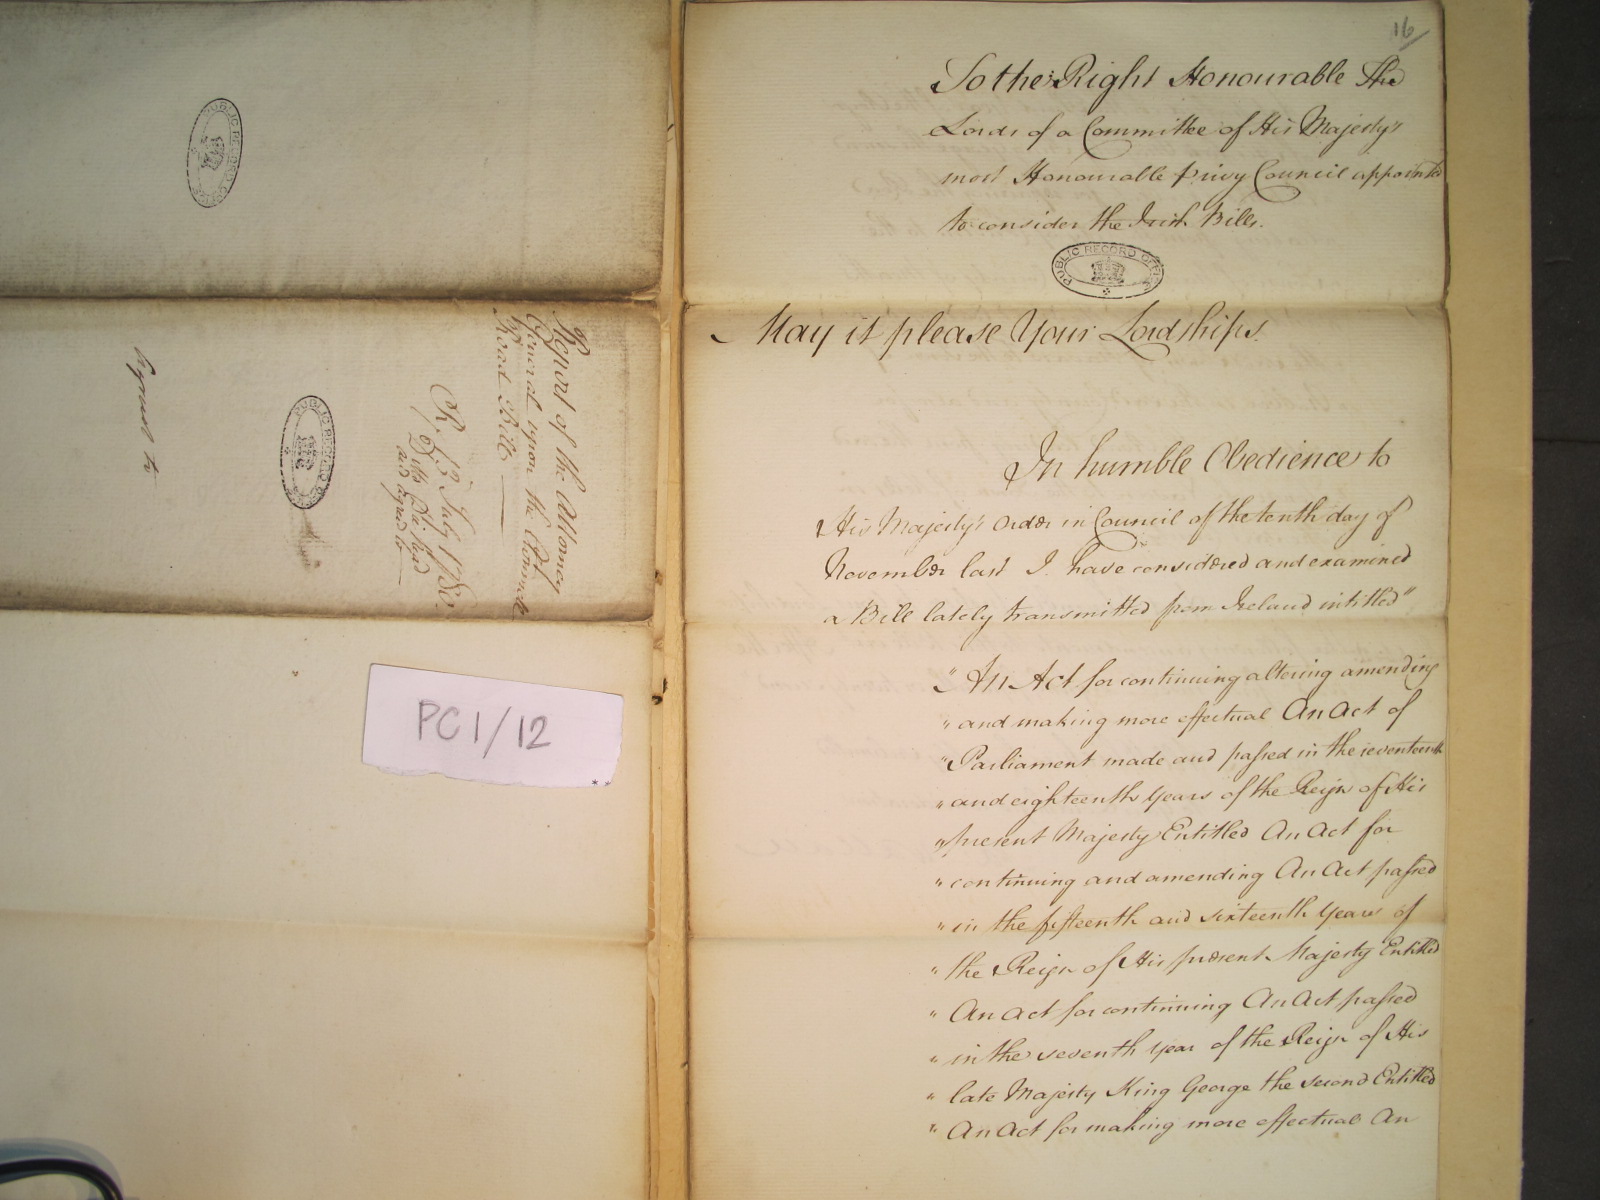 16
To the Right Honourable The
Lords of a Committee of His Majesty's
most Honourable privy Council appointed
to consider the Irish Bills.
PUBLIC RECORD OFFICE
May it please Your Lordships.
In humble Obedience to
His Majesty's Order in Council of the tenth day of
November last I have considered and examined
a Bill lately transmitted from Ireland intitled"
"An Act for continuing altering amending
"and making more effectual An Act of
"Parliament made and passed in the seventeenth
"and eighteenth Years of the Reign of His
"present Majesty Entitled An Act for
"continuing and amending An Act passed
"in the fifteenth and sixteenth Years of
"the Reign of His present Majesty Entitled
"An Act for continuing An Act passed
"in the seventh year of the Reign of His
"late Majesty King George the second Entitled
"An Act for making more effectual An
PUBLIC RECORD OFFICE
Report of the Attorney
General upon the
Road Bill
July
and agreed to
PUBLIC RECORD OFFICE
PC1/12